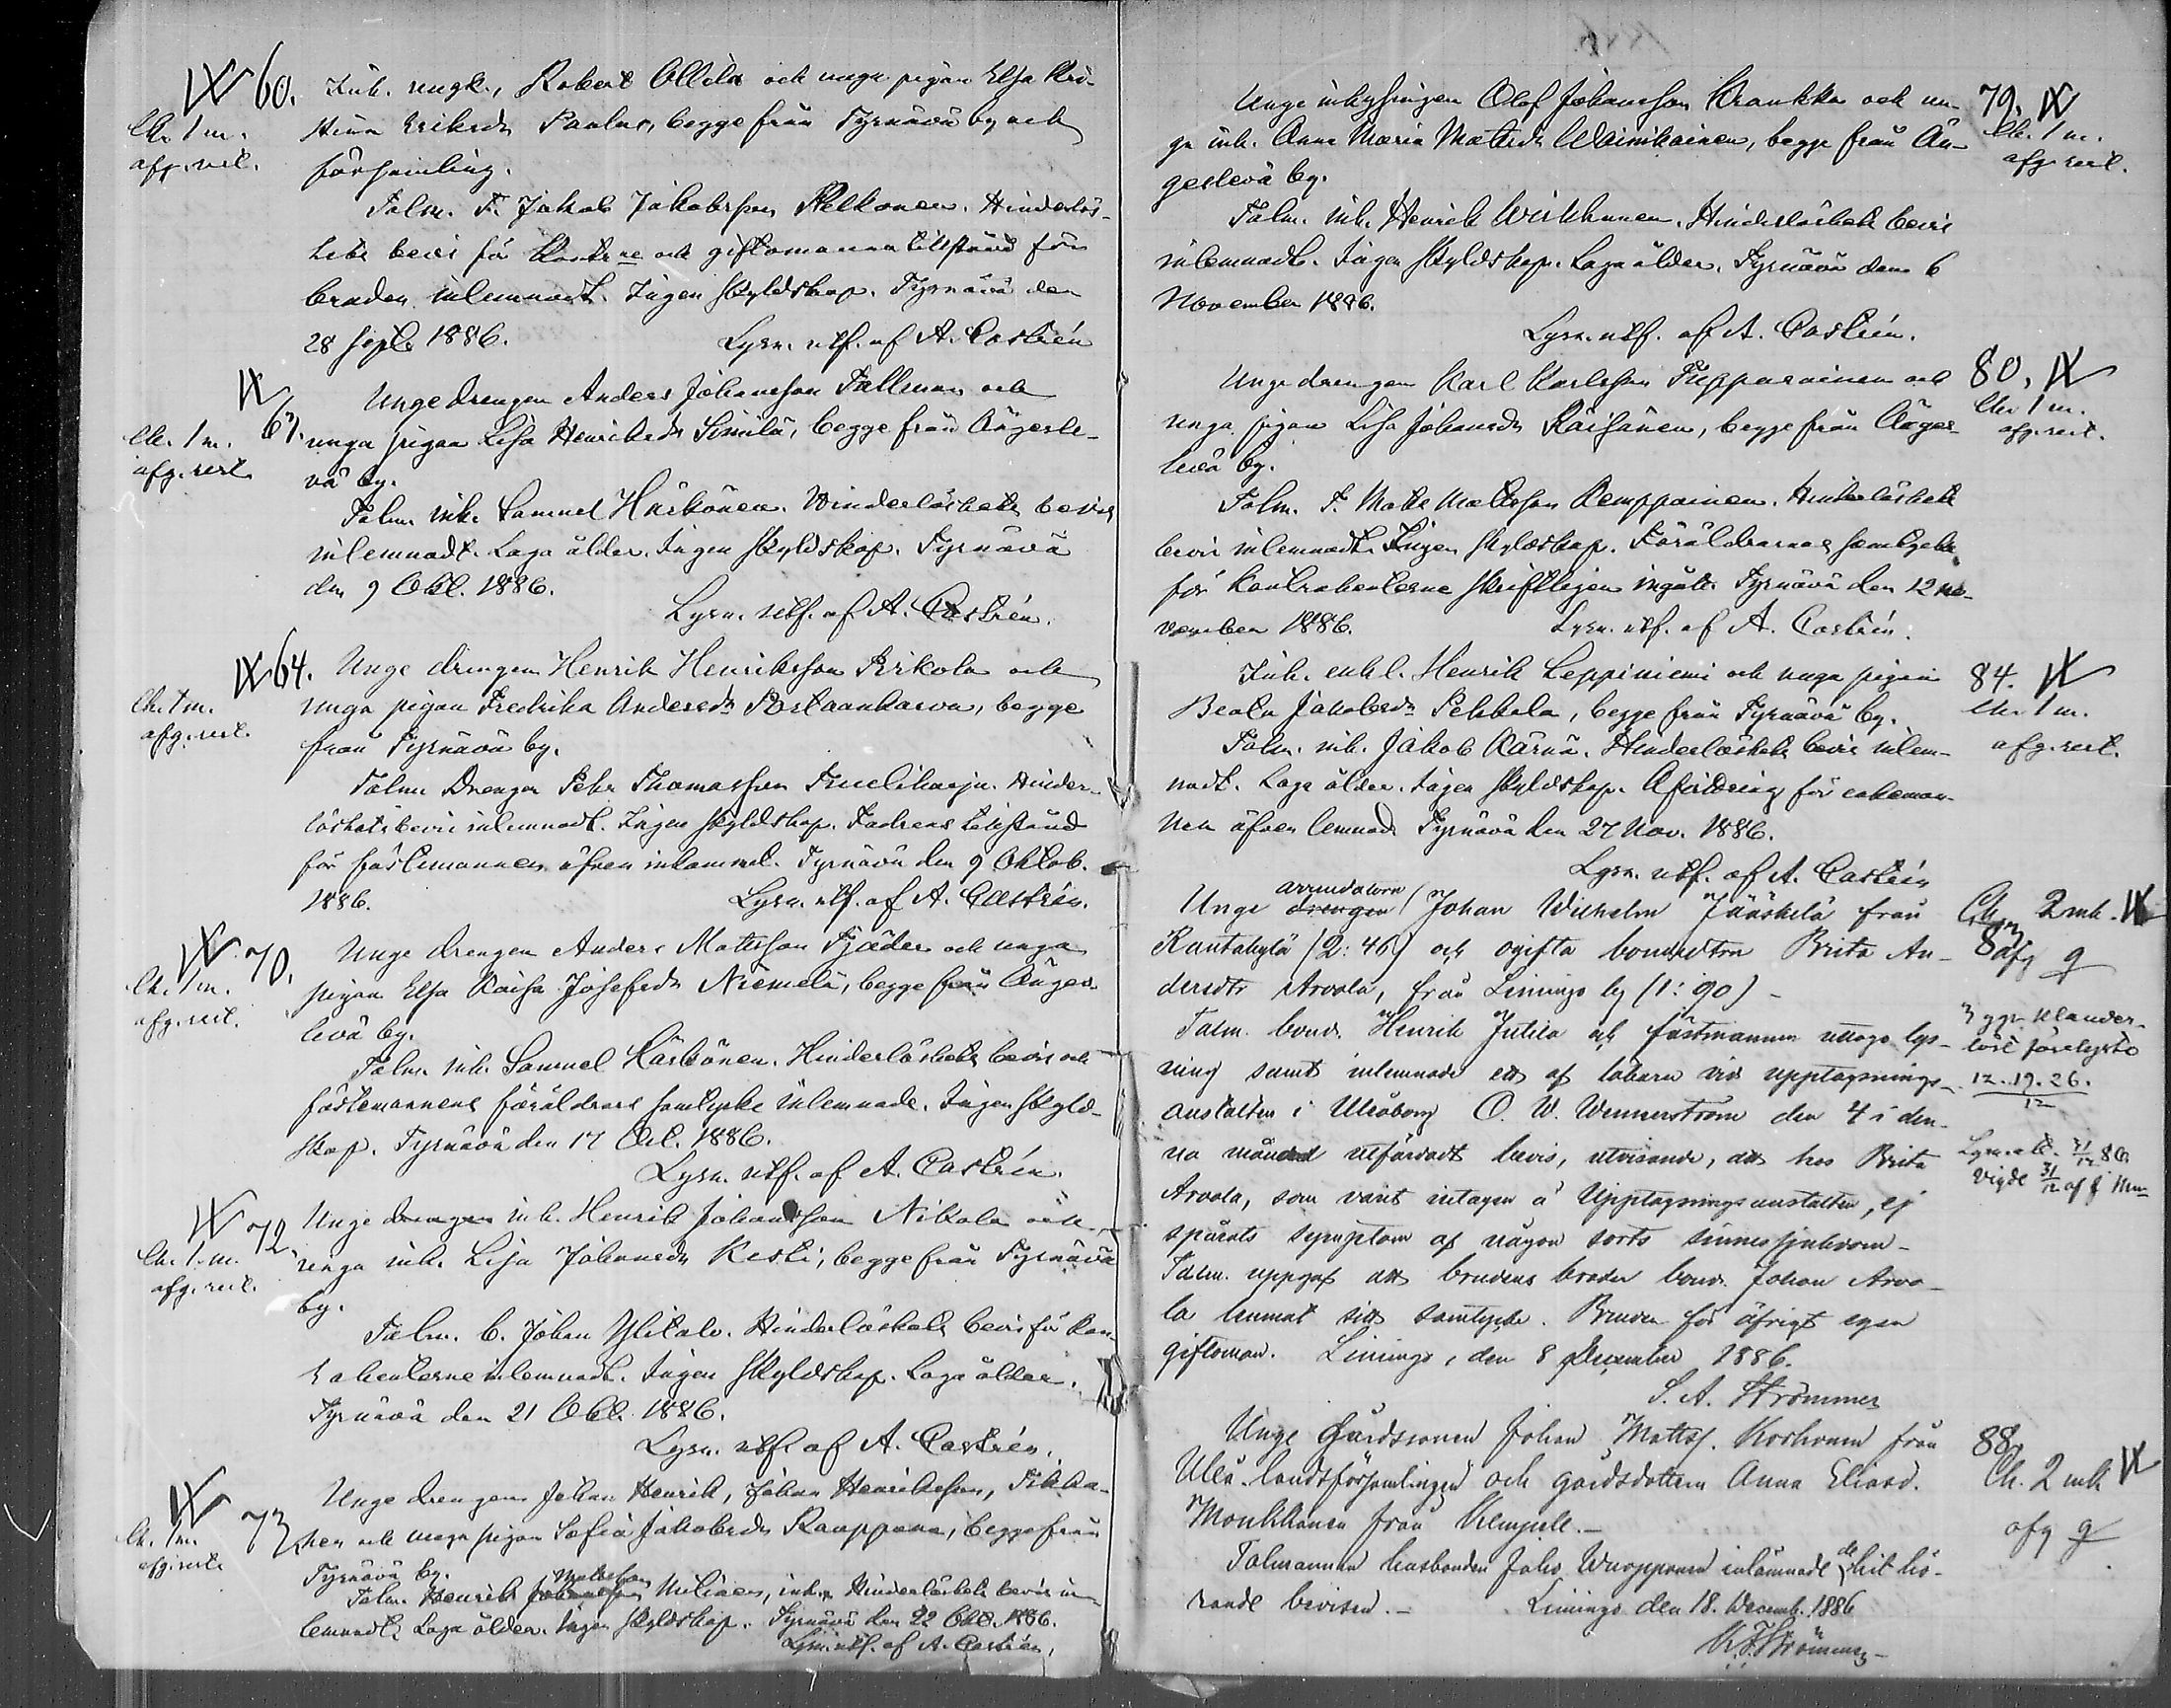 60. Inh. ungk., Robert Ollila och unga pigan Elsa Kri-
Ch. 1 m. stina Eriksdr Paulus, begge från Tyrnävä by och
afg. rest. församling.
Talm. T. Jakob Jakobsson Pelkonen. Hinderlös-
hets bevis för och giftomanna tillstånd för
bruden inlemnadt. Ingen skyldskap. Tyrnävä den
28 Sept. 1886. Lysn. utf. af A. Castrén
Unge drengen Anders Johansson Tallman och
Ch. 1 m. 61. unga pigan Lisa Henriksdr Similä, begge från Ängesle-
afg. rest. vä by.
Talm. inh. Samuel Härkönen. Hinderlöshets bevis
inlemnadt. Laga ålder. Ingen skyldskap. Tyrnävä
den 9 Okt. 1886.
Lysn. utf. af A. Castrén.
64. Unge drengen Henrik Henriksson Erkola och
Ch. 1 m. unga pigan Fredrika Andersdr, begge
afg. rest. från Tyrnävä by.
Talm. Drengen Petr Thomasson. Hinder-
löshets bevis inlemnadt. Ingen skyldskap. Fadrens tillstånd
för fästemannen äfven inkommit. Tyrnävä den 9 Oktob.
1886. Lysn. utf. af A. Castrén.
70. Unge drengen Anders Matsson Fjäder och unga
Ch. 1 m. pigan Elsa Kaisa Josefsdr Niemelä, begge från Änges-
afg. rest. levä by.
Talm. inh. Samuel Härkönen. Hinderlöshets bevis och
fästemannens föräldrars samtycke inlemnade. Ingen skyld-
skap. Tyrnävä den 17 Okt. 1886.
Lysn. utf. af A. Castrén.
72. Unge drengen inh. Henrik Johansson Nikola och
Ch. 1 m. unga inh. Lisa Johansdr Kesti, begge från Tyrnävä
afg. rest. by.
Talm. b. Johan Ylitalo. Hinderlöshets bevis för kon-
trahenterne inlemnadt. Ingen skyldskap. Laga ålder.
Tyrnävä den 21 Okt. 1886.
Lysn. utf. af A. Castrén.
Unge drengen Johan Henrik, Johan Henriksson, Tikka-
Ch. 1 m. 73. nen och unga pigan Sofia Jakobsdr Kauppana, begge från
afg. rest. Tyrnävä by.
Matsson
Talm. Henrik Johansson Miliaen, inh. Hinderlöshets bevis in-
lemnadt. Laga ålder. Ingen skyldskap. Tyrnävä den 22 Okt. 1886.
Lysn. utf. af A. Castrén.
Unge inhysingen Olof Johansson Kraukka och un- 79.
ga inh. Anna Maria Matsdr Wäinikäinen, begge från Än- Ch. 1 m.
geslevä by. afg. rest.
Talm. inh. Henrik Wirkkunen. Hinderlöshets bevis
inlemnadt. Ingen skyldskap. Laga ålder. Tyrnävä den 6
November 1886.
Lysn. utf. af A. Castrén.
Unge drengen Karl Karlsson Tupparainen och 80.
unga pigan Lisa Johansdr Räisänen, begge från Änges- Ch. 1 m.
levä by. afg. rest.
Talm. T. Matts Mattsson Kemppainen. Hinderlöshets
bevis inlemnadt. Ingen skyldskap. Föräldrarnas samtycke
för kontrahenterna skriftligen ingått. Tyrnävä den 12 no-
vember 1886. Lysn. utf. af A. Castrén.
Inh. enkl. Henrik Leppiniemi och unga pigan 84.
Beata Jakobsdr Pekkala, begge från Tyrnävä by. Ch. 1 m.
Talm. inh. Jakob Kärnä. Hinderlöshets bevis inlem- afg. rest.
nadt. Laga ålder. Ingen skyldskap. Afvittring för enkeman-
nen äfven lemnad. Tyrnävä den 27 Nov. 1886.
Lysn. utf. af A. Castrén
arrendatorn
Unge drengen Johan Wilhelm Jääskelä från Ch. 2 mk.
Rantakylä (2:46) och ogifta bondedtrn Brita An- afg
dersdtr Arvola, från Limingo by (1:90) -
Talm. bond. Henrik Jutila och fästmannen uttogo lys- 3 ggr klander-
ning samt inlemnade ett af läkaren vid upptagnings- löst förelyste
anstalten i Uleåborg O. W. Wennerström den 4 i den- 12. 19. 26.
12
na månad utfärdadt bevis, utvisande, att hos Brita
Arvola, som varit intagen å Upptagningsanstalten, ej Vigde 31/12 af
spårats symptom af någon sorts sinnessjukdom -
Talm. uppgaf att brudens broder bond. Johan Arvo-
la lemnat sitt samtycke. Bruden för öfrigt egen
giftoman. Limingo, den 8 December 1886.
S. A. Strömmer
Unge gårdssonen Johan Mattss. Korhonen från 88.
Uleå landsförsamlingen och gårdsdottern Anna Eliasd. Ch. 2 mk
Moukkanen från Kempele.- afg
de
Talmannen husbonden Johs Wuopponen inlämnade hit hö-
rande bevisen.- Limingo den 18. Decemb. 1886
Strömmer